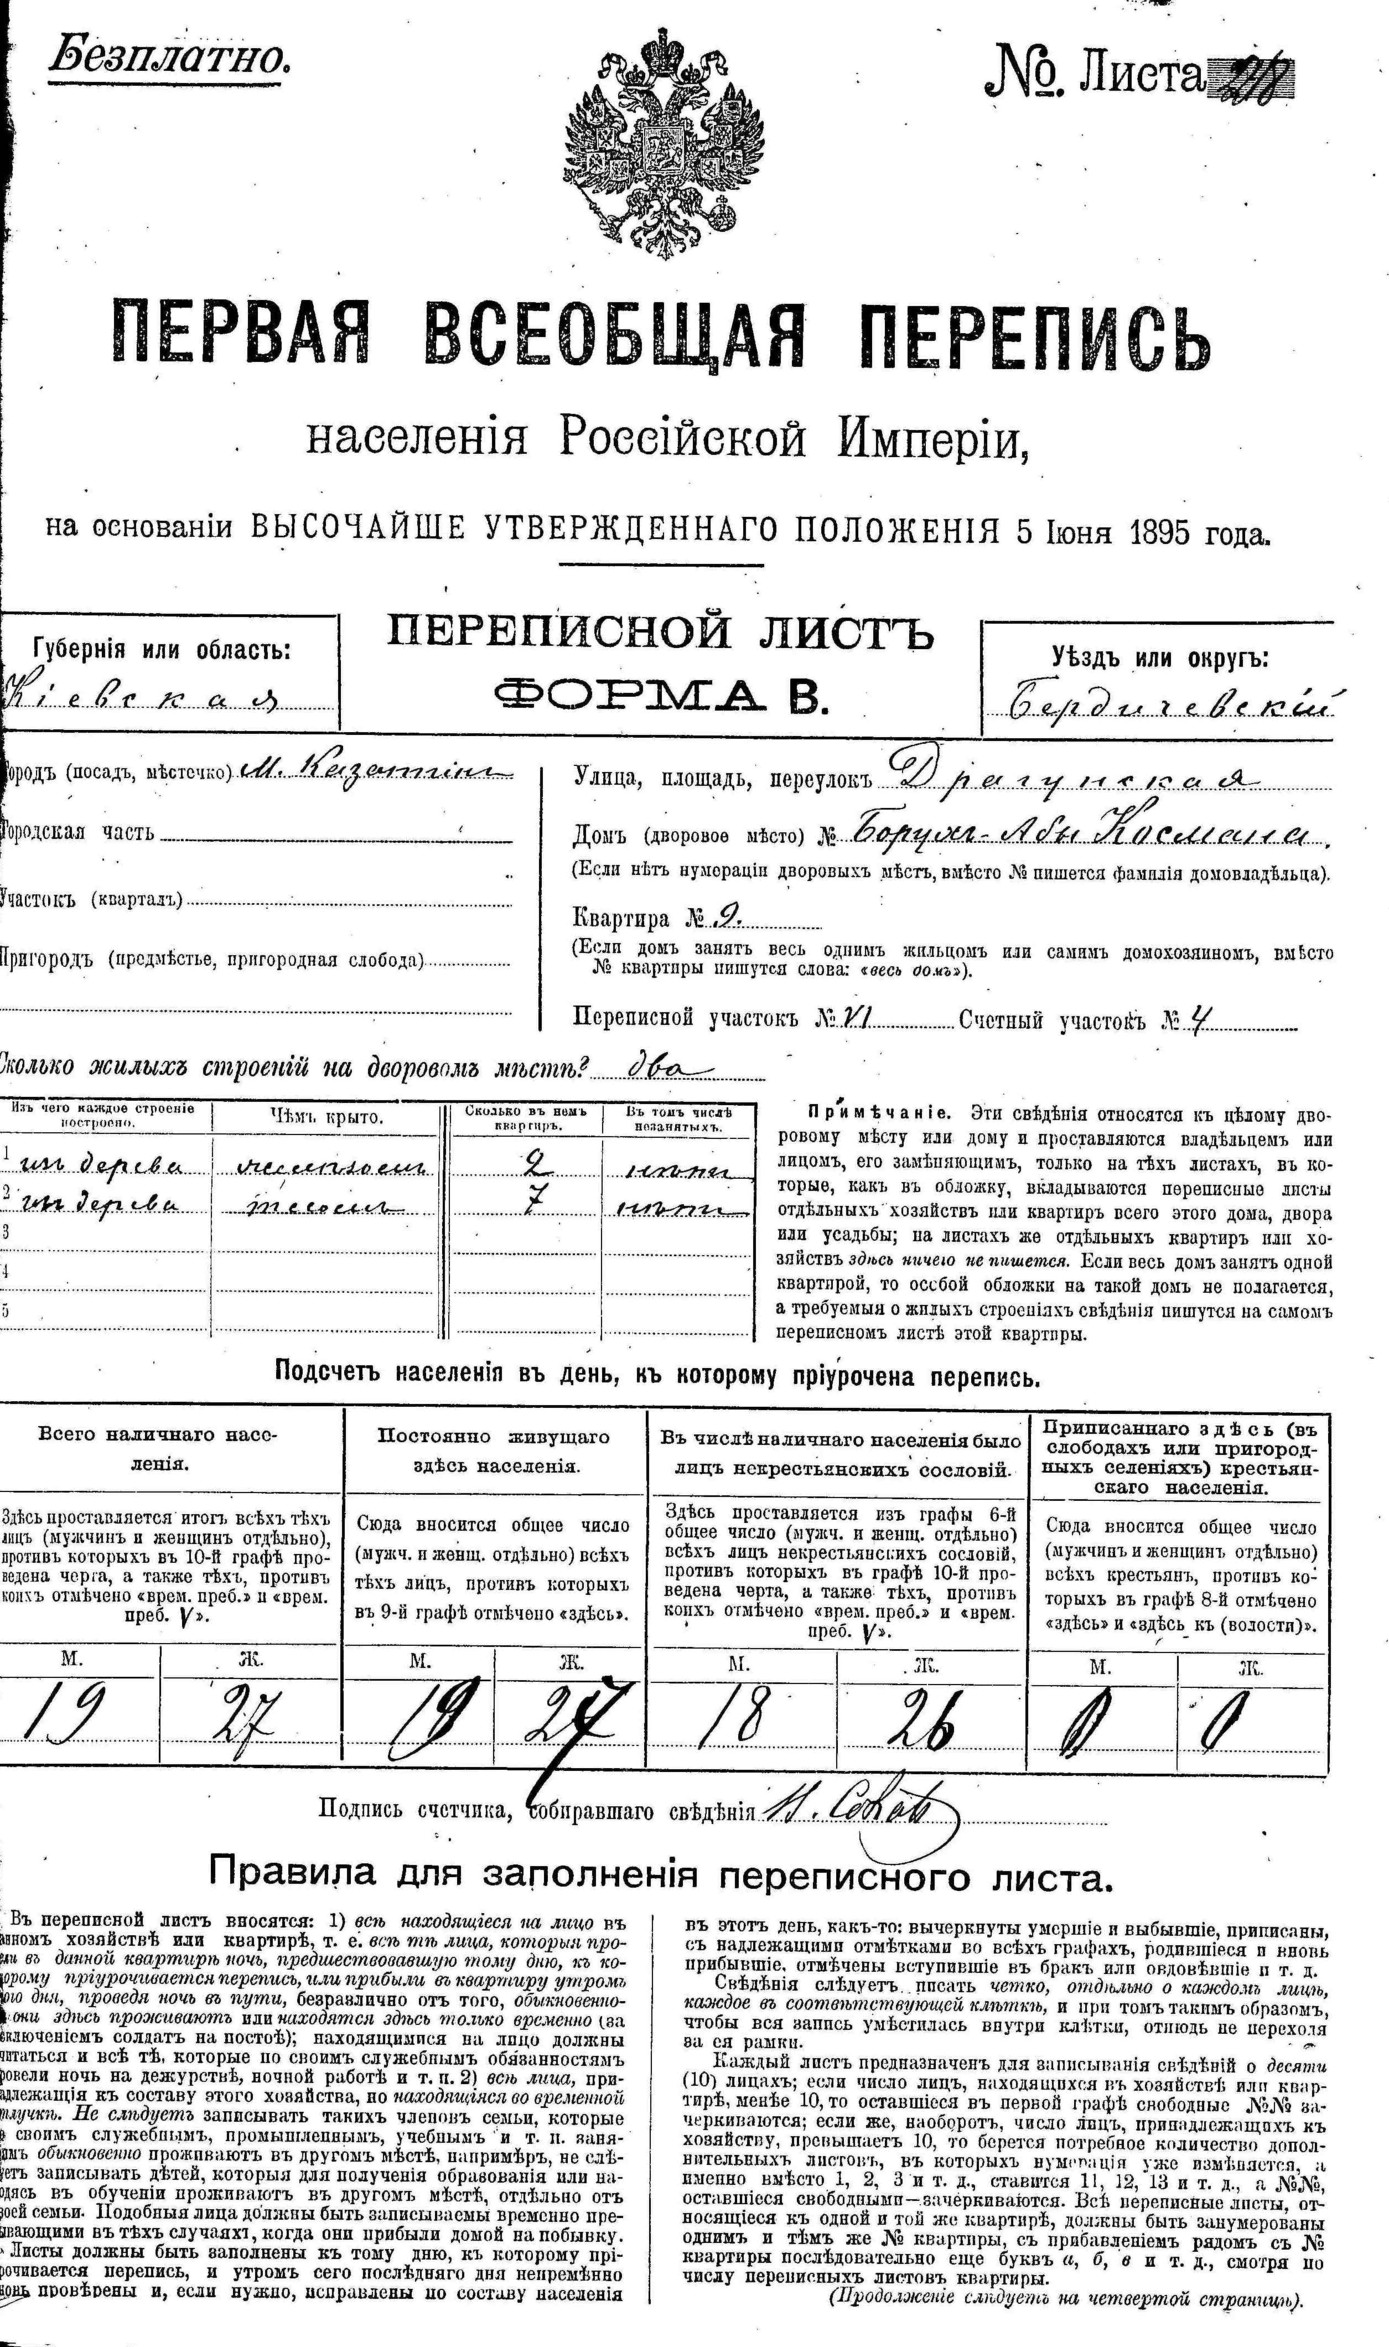 Безплатно.
№. Листа 218
ПЕРВАЯ ВСЕОБЩАЯ ПЕРЕПИСЬ
населенія Россійской Имперіи,
на основаніи ВЫСОЧАЙШЕ УТВЕРЖДЕННАГО ПОЛОЖЕНІЯ 5 Іюня 1895 года.
Губернія или область:
Кіевская
ПЕРЕПИСНОЙ ЛИСТЪ
ФОРМА В.
Уѣздъ или округъ:
Бердичевскій
ородъ (посадъ, мѣстечко) м. Казатинъ
Городская часть
Участокъ (кварталъ)
Пригородъ (предмѣстье, пригородная слобода)
Улица, площадь, переулокъ Драгунская
Домъ (дворовое мѣсто) № Борухъ-Абы Космана.
(Если нѣтъ нумераціи дворовыхъ мѣстъ, вмѣсто № пишется фамилія домовладѣльца).
Квартира № 9.
(Если домъ занятъ весь однимъ жильцомъ или самимъ домохозяиномъ, вмѣсто
№ квартиры пишутся слова: «весь домъ»).
Переписной участокъ № VI Счетный участокъ № 4
Сколько жилыхъ строеній на дворовомъ мѣстѣ? два
Изъ чего каждое строеніе построено. Чѣмъ крыто. Сколько въ немъ квартиръ. Въ томъ числѣ незанятыхъ.
1 изъ дерева 2 нѣтъ
2 изъ дерева тесомъ 7 нѣтъ
3
4
5
Примѣчаніе. Эти свѣдѣнія относятся къ цѣлому дво-
ровому мѣсту или дому и проставляются владѣльцемъ или
лицомъ, его замѣняющимъ, только на тѣхъ листахъ, въ ко-
торые, какъ въ обложку, вкладываются переписные листы
отдѣльныхъ хозяйствъ или квартиръ всего этого дома, двора
или усадьбы; на листахъ же отдѣльныхъ квартиръ или хо-
зяйствъ здѣсь ничего не пишется. Если весь домъ занятъ одной
квартирой, то особой обложки на такой домъ не полагается,
а требуемыя о жилыхъ строеніяхъ свѣдѣнія пишутся на самомъ
переписномъ листѣ этой квартиры.
Подсчетъ населенія въ день, къ которому пріурочена перепись.
Всего наличнаго насе-
ленія.
Здѣсь проставляется итогъ всѣхъ тѣхъ
лицъ (мужчинъ и женщинъ отдѣльно),
противъ которыхъ въ 10-й графѣ про-
ведена черта, а также тѣхъ, противъ
коихъ отмѣчено «врем. преб.» и «врем.
преб. V».
М. Ж.
19 27
Постоянно живущаго
здѣсь населенія.
Сюда вносится общее число
(мужч. и женщ. отдѣльно) всѣхъ
тѣхъ лицъ, противъ которыхъ
въ 9-й графѣ отмѣчено «здѣсь».
М. Ж.
19 27
Въ числѣ наличнаго населенія было
лицъ некрестьянскихъ сословій.
Здѣсь проставляется изъ графы 6-й
общее число (мужч. и женщ. отдѣльно)
всѣхъ лицъ некрестьянскихъ сословій,
противъ которыхъ въ графѣ 10-й про-
ведена черта, а также тѣхъ, противъ
коихъ отмѣчено «врем. преб.» и «врем.
преб. V».
М. Ж.
18 26
Приписаннаго здѣсь (въ
слободахъ или пригород-
ныхъ селеніяхъ) крестьян-
скаго населенія.
Сюда вносится общее число
(мужчинъ и женщинъ отдѣльно)
всѣхъ крестьянъ, противъ ко-
торыхъ въ графѣ 8-й отмѣчено
«здѣсь» и «здѣсь къ (волости)».
М. Ж.
0 0
Подпись счетчика, собиравшаго свѣдѣнія
Правила для заполненія переписного листа.
Въ переписной листъ вносятся: 1) всѣ находящіеся на лицо въ
анномъ хозяйствѣ или квартирѣ, т. е. всѣ тѣ лица, которыя про-
ели въ данной квартирѣ ночь, предшествовавшую тому дню, къ ко-
орому пріурочивается перепись, или прибыли въ квартиру утромъ
ого дня, проведя ночь въ пути, безразлично отъ того, обыкновенно-
они здѣсь проживаютъ или находятся здѣсь только временно (за
сключеніемъ солдатъ на постоѣ); находящимися на лицо должны
читаться и всѣ тѣ, которые по своимъ служебнымъ обязанностямъ
ровели ночь на дежурствѣ, ночной работѣ и т. п. 2) всѣ лица, при-
адлежащія къ составу этого хозяйства, но находящіяся во временной
тлучкѣ. Не слѣдуетъ записывать такихъ членовъ семьи, которые
своимъ служебнымъ, промышленнымъ, учебнымъ и т. п. заня-
імъ обыкновенно проживаютъ въ другомъ мѣстѣ, напримѣръ, не слѣ-
уетъ записывать дѣтей, которыя для полученія образованія или на-
одясь въ обученіи проживаютъ въ другомъ мѣстѣ, отдѣльно отъ
воей семьи. Подобныя лица должны быть записываемы временно пре-
ывающими въ тѣхъ случаяхъ, когда они прибыли домой на побывку.
Листы должны быть заполнены къ тому дню, къ которому прі-
рочивается перепись, и утромъ сего послѣдняго дня непремѣнно
новь провѣрены и, если нужно, исправлены по составу населенія
въ этотъ день, какъ-то: вычеркнуты умершіе и выбывшіе, приписаны,
съ надлежащими отмѣтками во всѣхъ графахъ, родившіеся и вновь
прибывшіе, отмѣчены вступившіе въ бракъ или овдовѣвшіе и т. д.
Свѣдѣнія слѣдуетъ писать четко, отдѣльно о каждомъ лицѣ,
каждое въ соотвѣтствующей клѣткѣ, и при томъ такимъ образомъ,
чтобы вся запись умѣстилась внутри клѣтки, отнюдь не переходя
за ея рамки.
Каждый листъ предназначенъ для записыванія свѣдѣній о десяти
(10) лицахъ; если число лицъ, находящихся въ хозяйствѣ или квар-
тирѣ, менѣе 10, то оставшіеся въ первой графѣ свободные №№ за-
черкиваются; если же, наоборотъ, число лицъ, принадлежащихъ къ
хозяйству, превышаетъ 10, то берется потребное количество допол-
нительныхъ листовъ, въ которыхъ нумерація уже измѣняется, а
именно вмѣсто 1, 2, 3 и т. д., ставится 11, 12, 13 и т. д., а №№,
оставшіеся свободными—зачеркиваются. Всѣ переписные листы, от-
носящіеся къ одной и той же квартирѣ, должны быть занумерованы
однимъ и тѣмъ же № квартиры, съ прибавленіемъ рядомъ съ №
квартиры послѣдовательно еще буквъ а, б, в и т. д., смотря по
числу переписныхъ листовъ квартиры.
(Продолженіе слѣдуетъ на четвертой страницѣ).